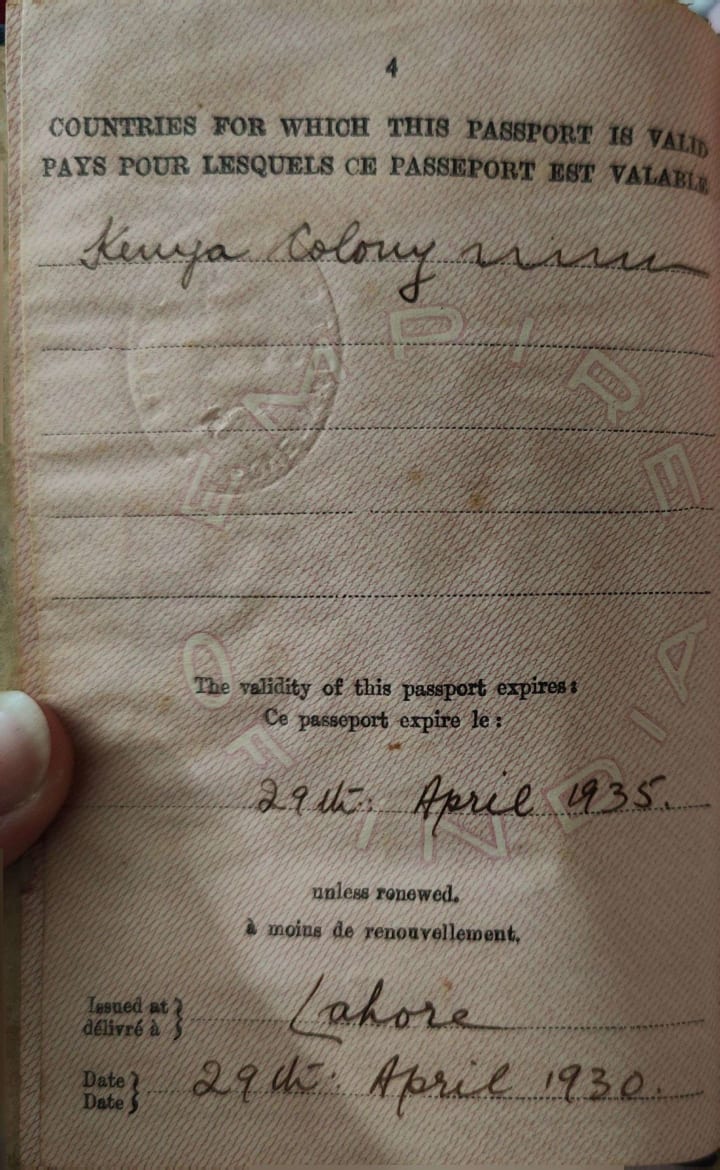 4
COUNTRIES FOR WHICH THIS PASSPORT IS VALID
PAYS POUR LESQUELS CE PASSEPORT EST VALABLE
Kenya Colony
EMPIRE
OF INDIA
The validity of this passport expires:
Ce passeport expire le :
29th: April 1935.
unless renewed.
à moins de renouvellement.
Issued at }
délivré à }
Lahore
Date }
Date }
29th: April 1930.